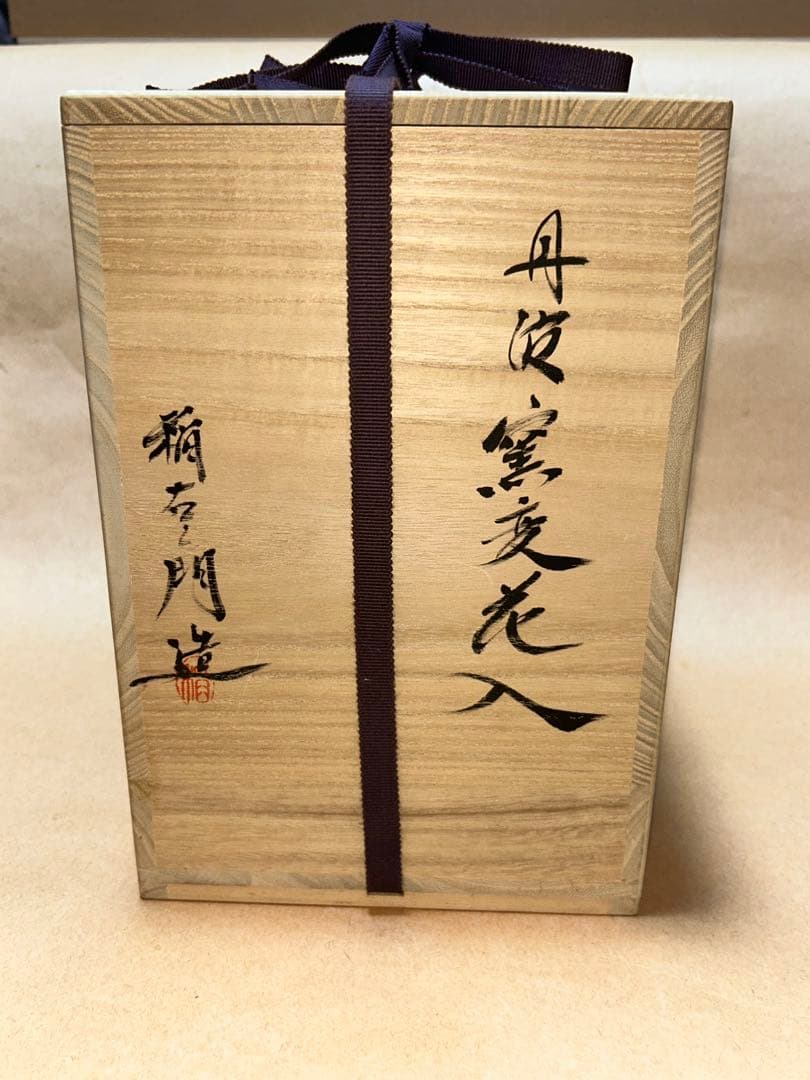 丹波窯変花入
稲右エ門造